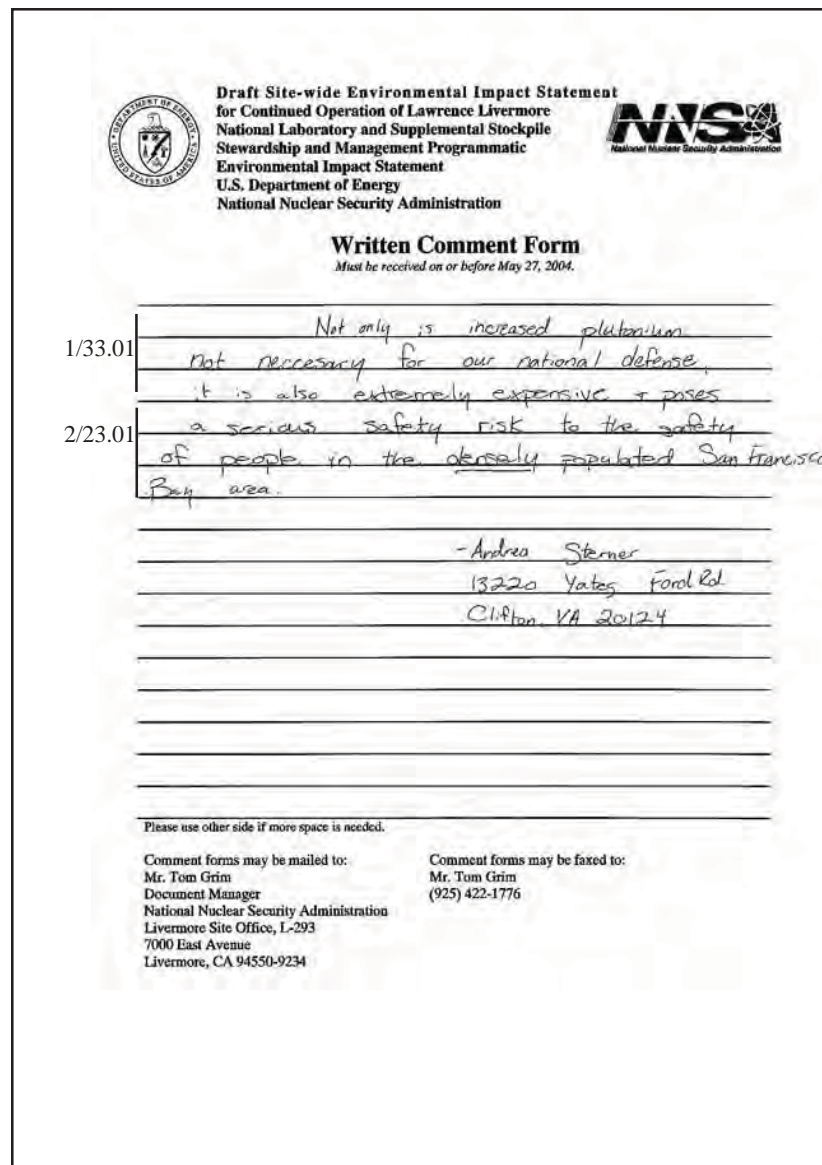 DEPARTMENT OF ENERGY
UNITED STATES OF AMERICA
Draft Site-wide Environmental Impact Statement
for Continued Operation of Lawrence Livermore
National Laboratory and Supplemental Stockpile
Stewardship and Management Programmatic
Environmental Impact Statement
U.S. Department of Energy
National Nuclear Security Administration
NNSA
National Nuclear Security Administration
Written Comment Form
Must be received on or before May 27, 2004.
Not only is increased plutonium
1/33.01
not neccesary for our national defense,
it is also extremely expensive + poses
2/23.01
a serious safety risk to the safety
of people in the densely populated San Francisco
Bay area.
-Andrea Sterner
13220 Yates Ford Rd
Clifton, VA 20124
Please use other side if more space is needed.
Comment forms may be mailed to:
Mr. Tom Grim
Document Manager
National Nuclear Security Administration
Livermore Site Office, L-293
7000 East Avenue
Livermore, CA 94550-9234
Comment forms may be faxed to:
Mr. Tom Grim
(925) 422-1776